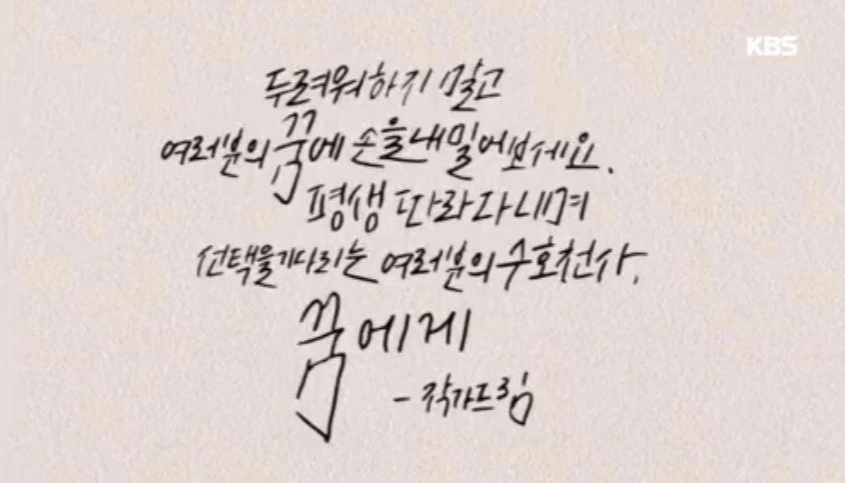 KBS
두려워하지 말고
여러분의 꿈에 손을 내밀어보세요.
평생 따라다니며
선택을 기다리는 여러분의 수호천사,
꿈에게
- 작가드림